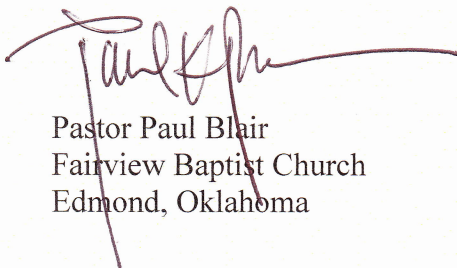 Pastor Paul Blair
Fairview Baptist Church
Edmond, Oklahoma